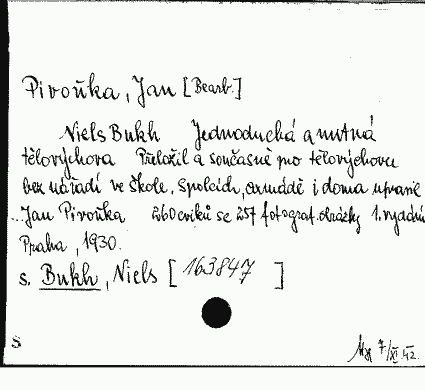 Pivoňka, Jan [Bearb.]
Niels Bukh Jednoduchá a nutná
tělovýchova Přeložil a současně pro tělovýchovu
bez nářadí ve škole, spolcích, armádě i doma upravil
Jan Pivoňka 260 cviků se 257 fotograf. obrázky 1. vydání
Praha, 1930.
s. Bukh, Niels [163847]
S
7/XI 42.